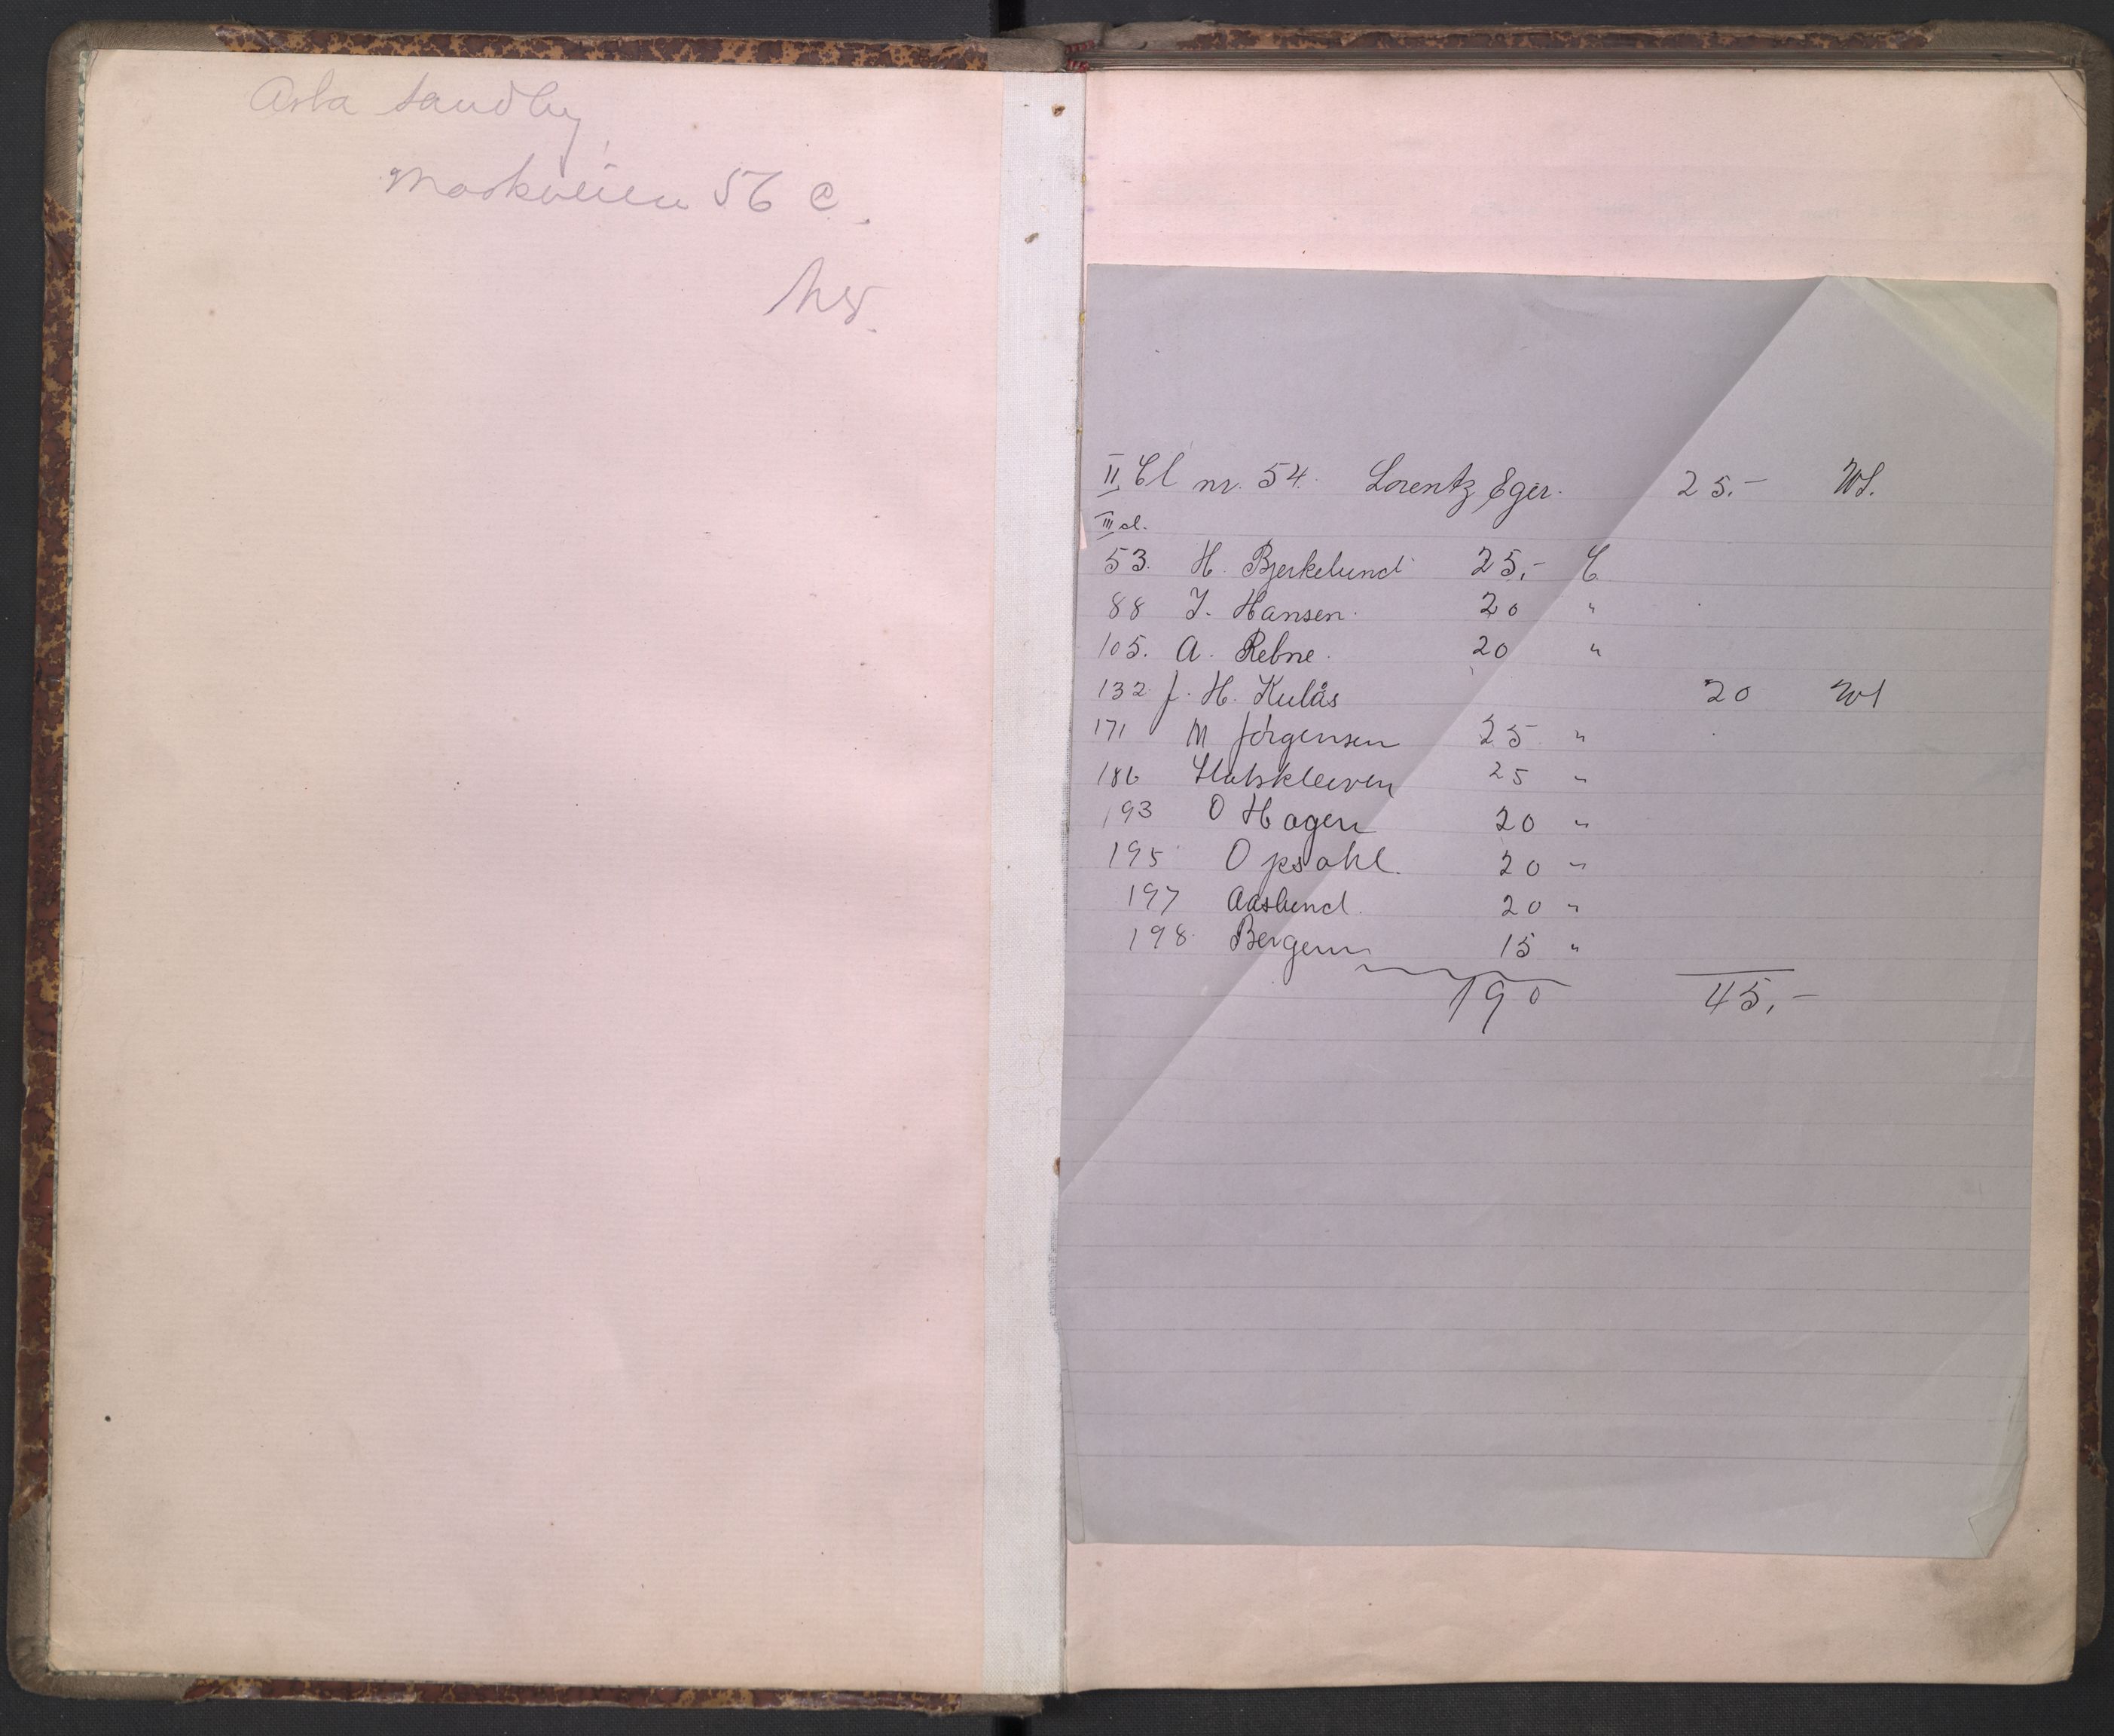 Asta Sandby,
Markveien 56 C.
II Cl nr. 54. Lorentz Eger. 25.- Wl.
III cl.
53. H. Bjerkelund 25,- C
88 J. Hansen. 20 "
105. A. Rebne. 20 "
132. J. H. Kulås 20 Wl
171 M Jörgensen 25 "
186 Slatskleiven 25 "
193 O Hagen 20 "
195 Opsahl. 20 "
197 Aaslund. 20 "
198. Bergem 15 "
190 45,-